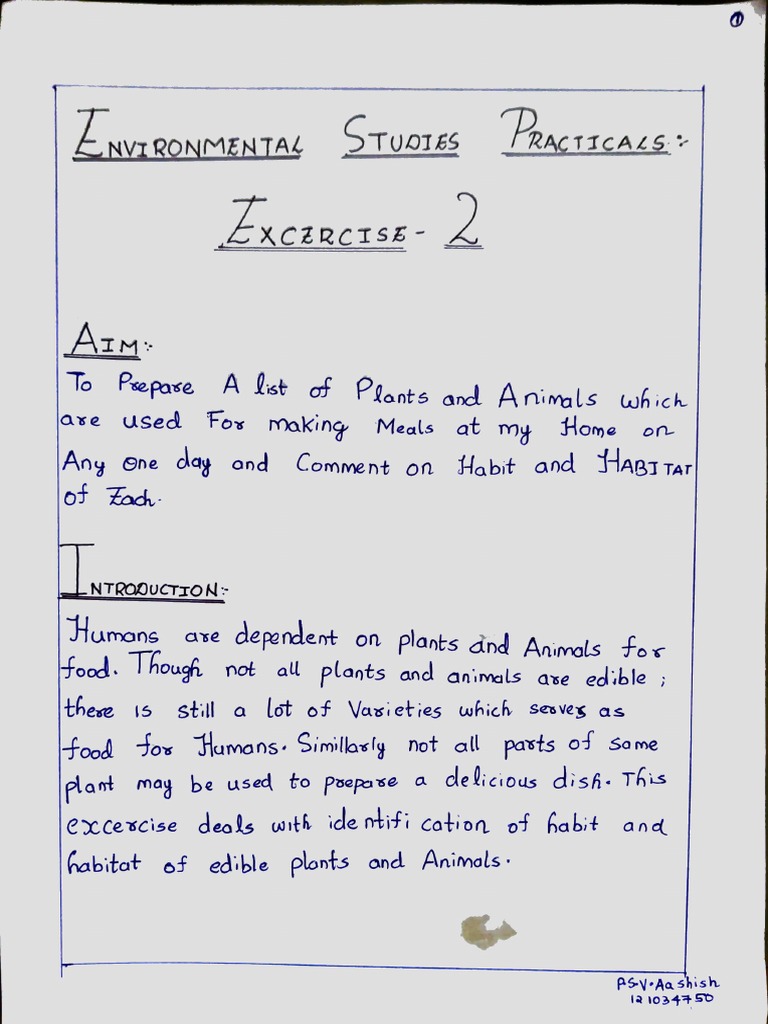 1
ENVIRONMENTAL STUDIES PRACTICALS:-
EXCERCISE - 2
AIM:-
To Prepare A list of Plants and Animals which
are used For making Meals at my Home on
Any one day and Comment on Habit and HABITAT
of Each.
INTRODUCTION:-
Humans are dependent on plants and Animals for
food. Though not all plants and animals are edible ;
there is still a lot of Varieties which serves as
food for Humans. Simillarly not all parts of same
plant may be used to prepare a delicious dish. This
excercise deals with identification of habit and
habitat of edible plants and Animals.
P.S.V. Aashish
121034750